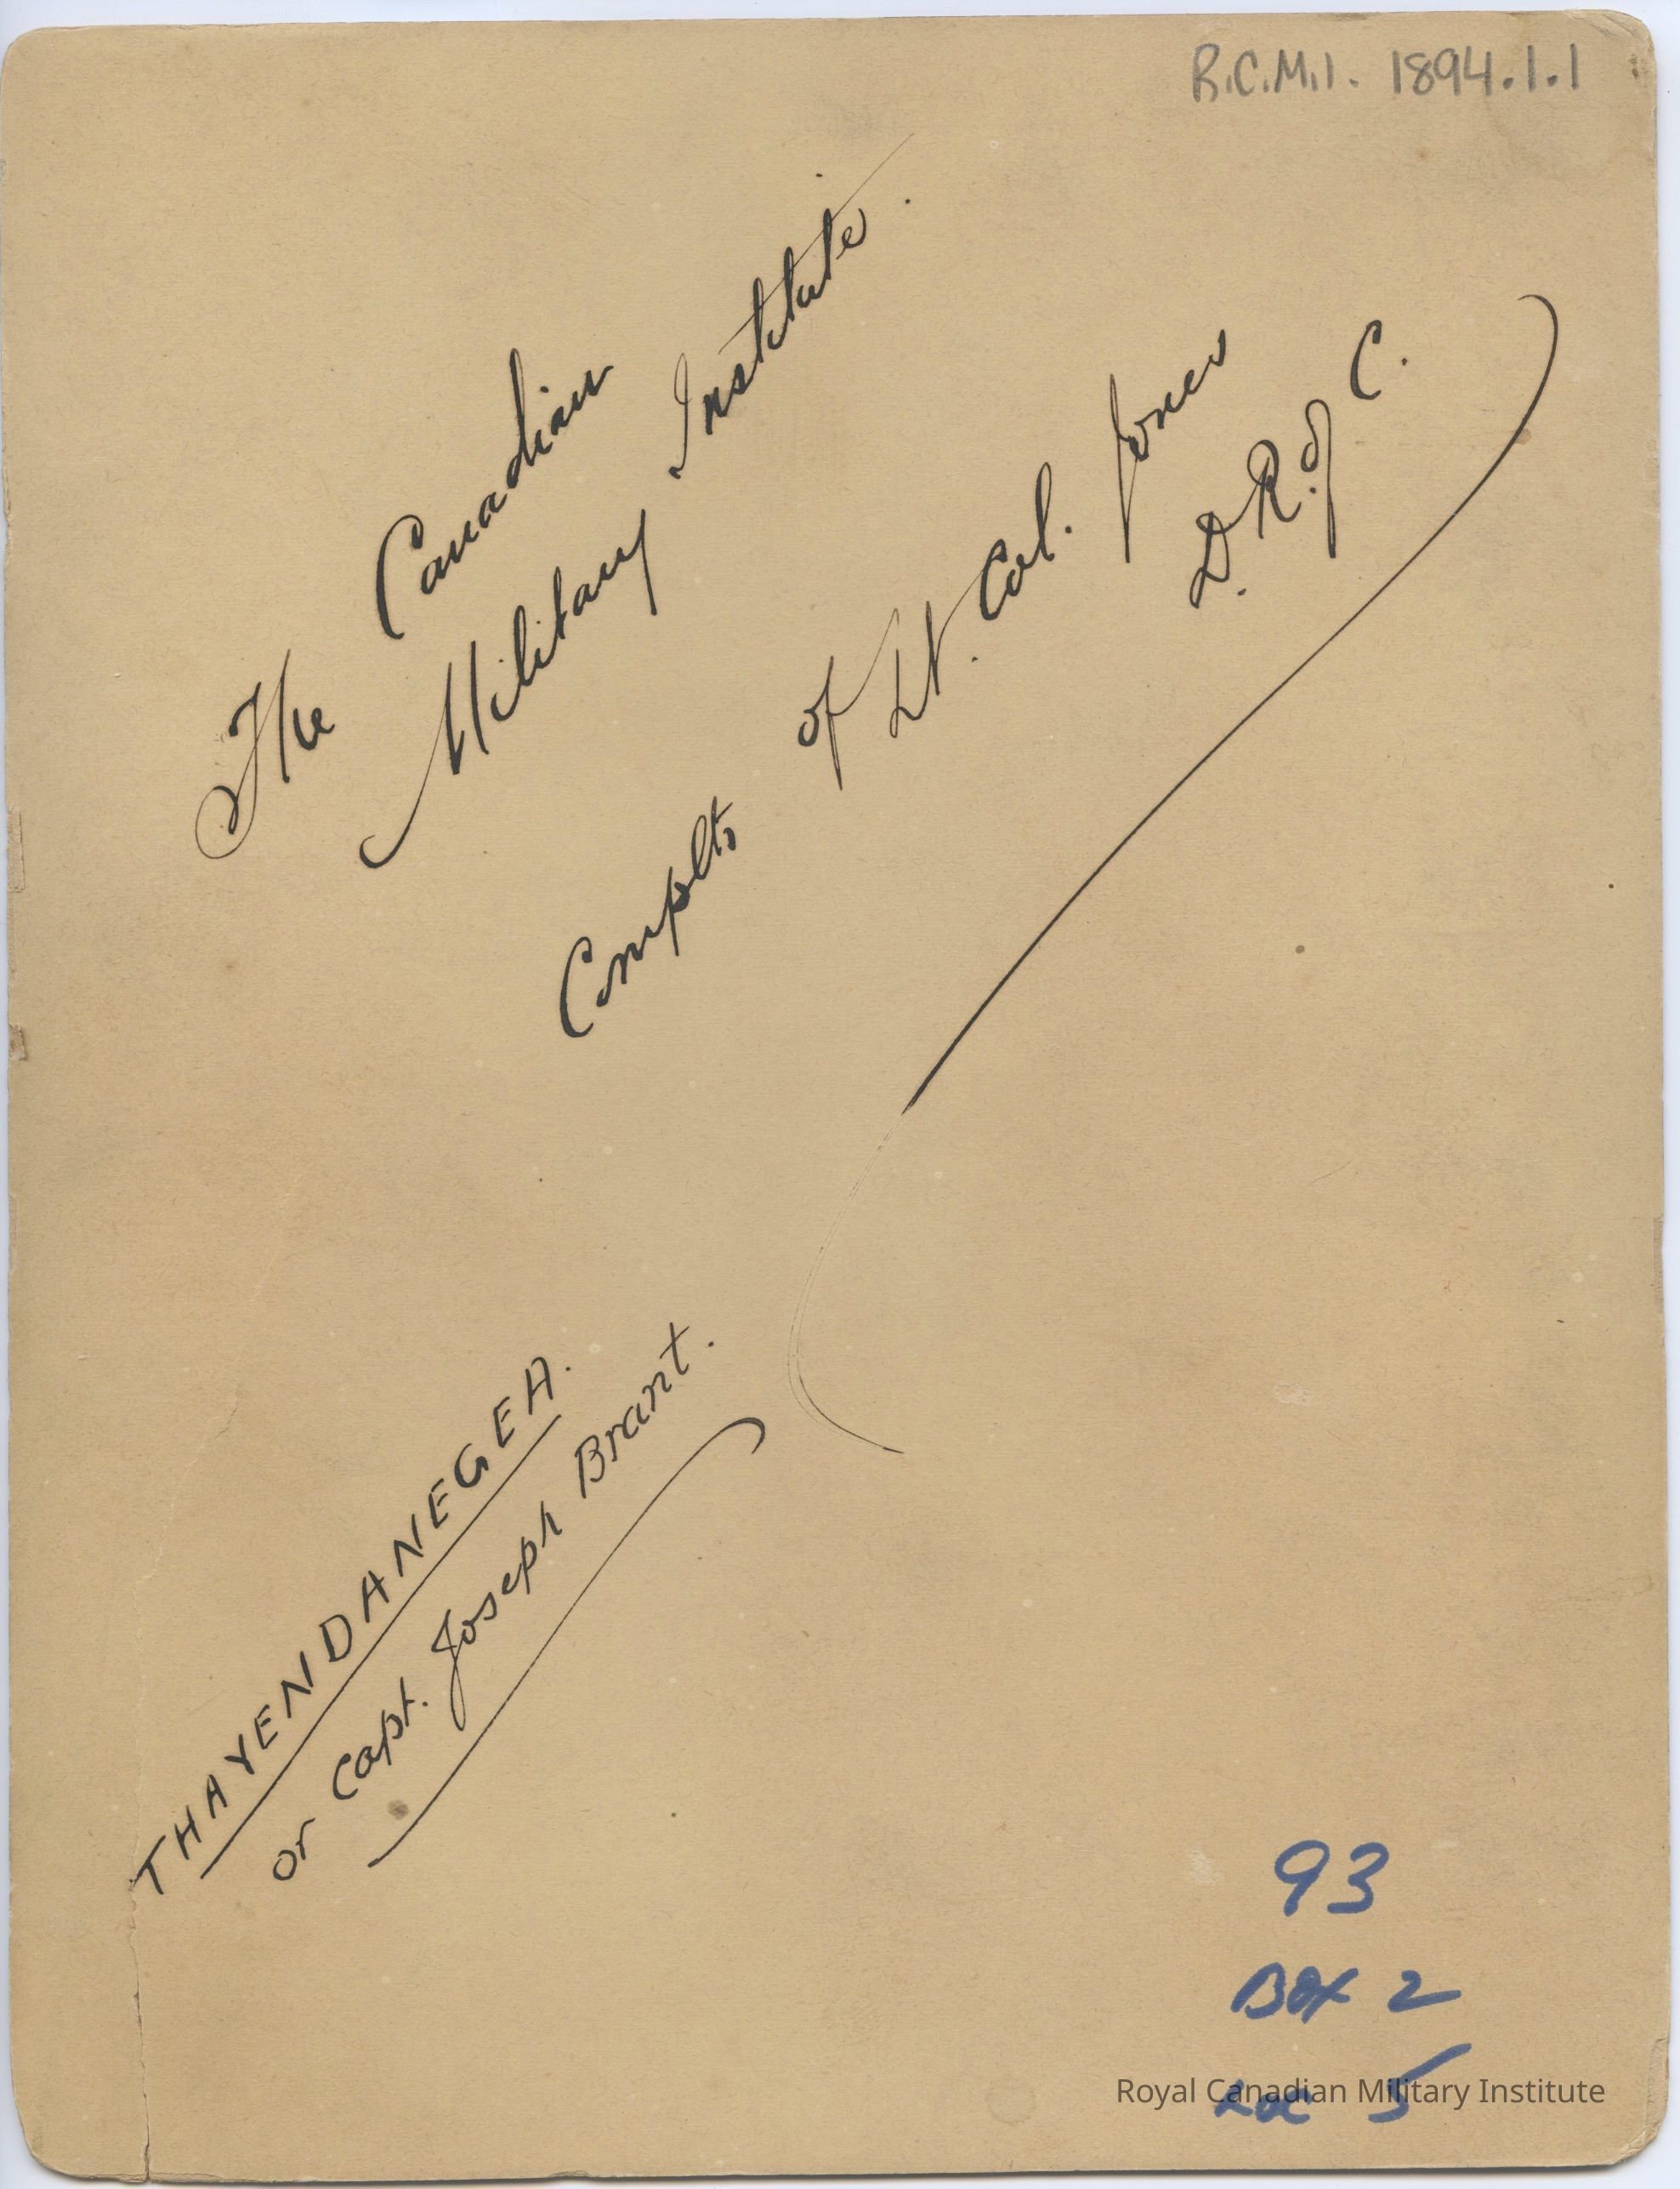 R.C.M.I. 1894.1.1
The Canadian
Military Institute.
Complts of Lt. Col. Jones
D.R. of C.
THAYENDANEGEA.
or Capt. Joseph Brant.
93
Box 2
Loc 5
Royal Canadian Military Institute